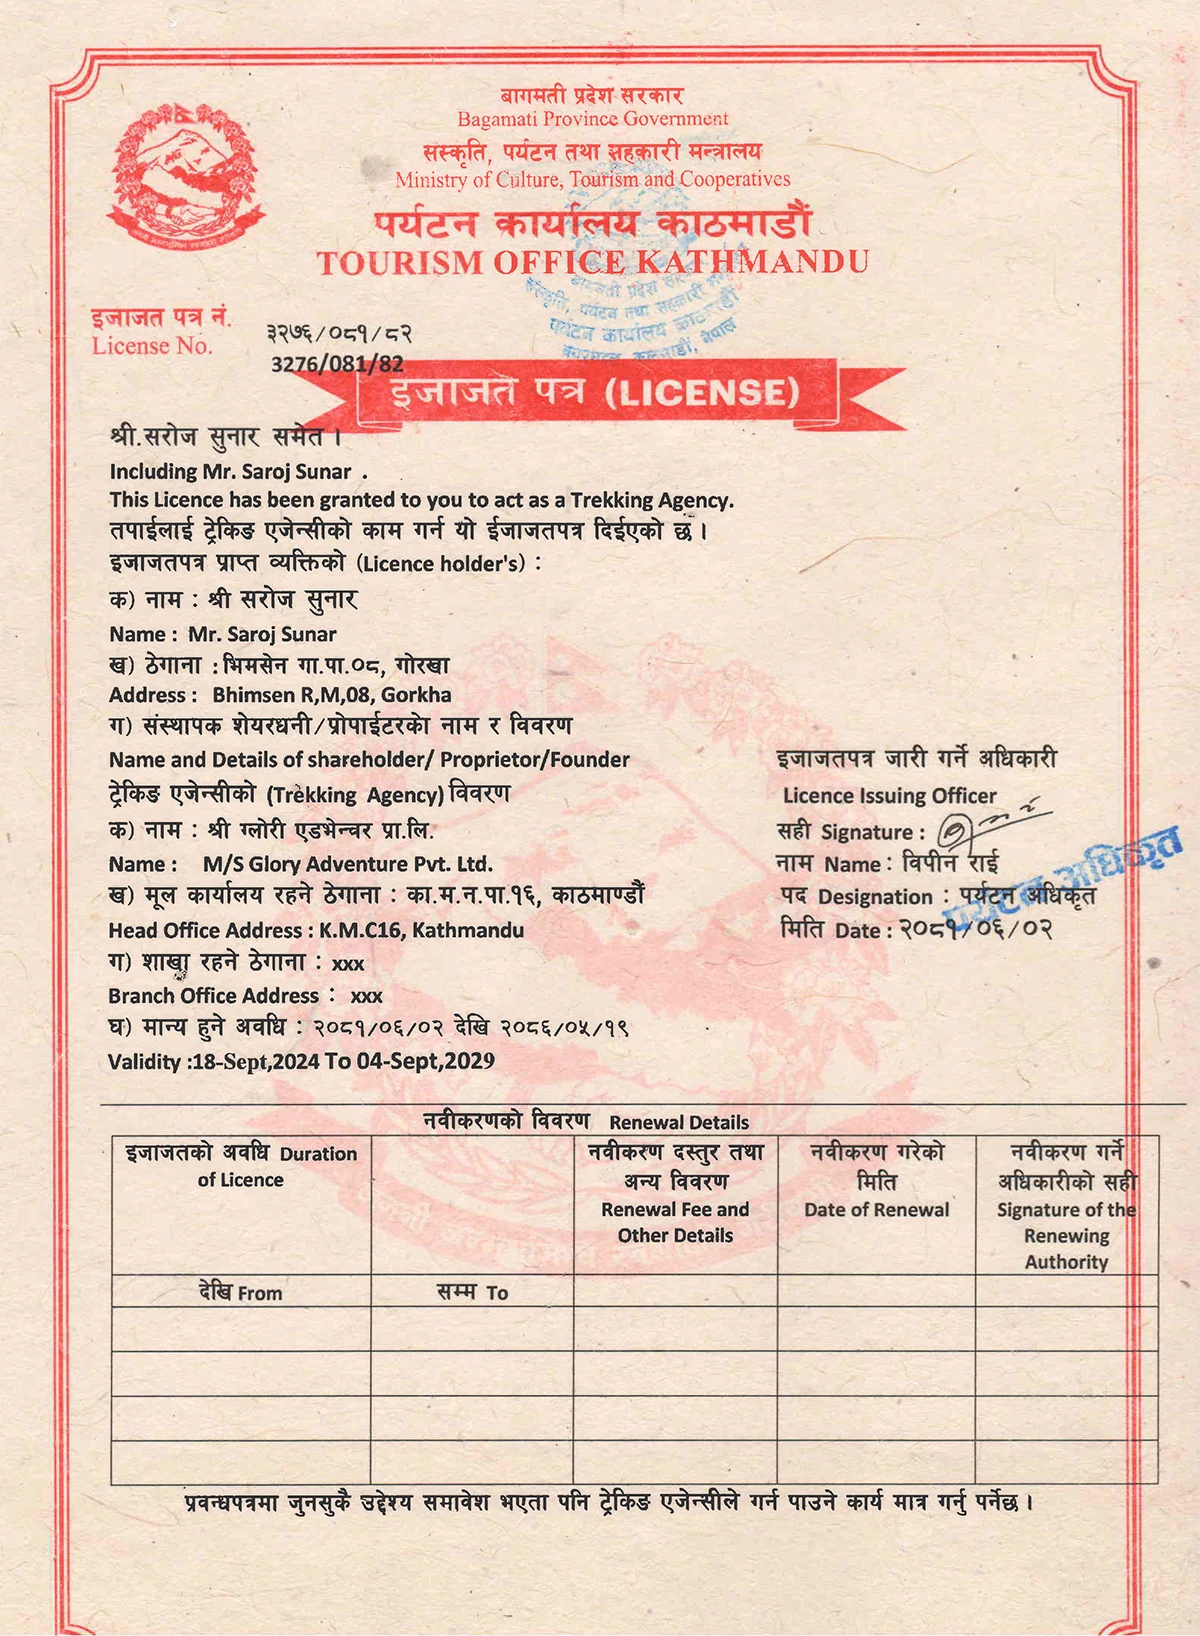 बागमती प्रदेश सरकार
Bagamati Province Government
संस्कृति, पर्यटन तथा सहकारी मन्त्रालय
Ministry of Culture, Tourism and Cooperatives
पर्यटन कार्यालय काठमाडौं
TOURISM OFFICE KATHMANDU
बागमती प्रदेश
संस्कृति, पर्यटन तथा सहकारी
पर्यटन कार्यालय काठमाडौं
काठमाडौं, नेपाल
इजाजत पत्र नं. ३२७६/०८१/८२
License No. 3276/081/82
इजाजत पत्र (LICENSE)
श्री.सरोज सुनार समेत ।
Including Mr. Saroj Sunar .
This Licence has been granted to you to act as a Trekking Agency.
तपाईलाई ट्रेकिङ एजेन्सीको काम गर्न यो ईजाजतपत्र दिईएको छ ।
इजाजतपत्र प्राप्त व्यक्तिको (Licence holder's) :
क) नाम : श्री सरोज सुनार
Name : Mr. Saroj Sunar
ख) ठेगाना : भिमसेन गा.पा.०८, गोरखा
Address : Bhimsen R,M,08, Gorkha
ग) संस्थापक शेयरधनी/प्रोपाईटरको नाम र विवरण
Name and Details of shareholder/ Proprietor/Founder
ट्रेकिङ एजेन्सीको (Trekking Agency) विवरण
क) नाम : श्री ग्लोरी एडभेन्चर प्रा.लि.
Name : M/S Glory Adventure Pvt. Ltd.
ख) मूल कार्यालय रहने ठेगाना : का.म.न.पा.१६, काठमाण्डौं
Head Office Address : K.M.C16, Kathmandu
ग) शाखा रहने ठेगाना : xxx
Branch Office Address : xxx
घ) मान्य हुने अवधि : २०८१/०६/०२ देखि २०८६/०५/१९
Validity :18-Sept,2024 To 04-Sept,2029
इजाजतपत्र जारी गर्ने अधिकारी
Licence Issuing Officer
सही Signature :
नाम Name : विपीन राई
पद Designation : पर्यटन अधिकृत
मिति Date : २०८१/०६/०२
पर्यटन अधिकृत
नवीकरणको विवरण Renewal Details
इजाजतको अवधि Duration
of Licence
नवीकरण दस्तुर तथा
अन्य विवरण
Renewal Fee and
Other Details
नवीकरण गरेको
मिति
Date of Renewal
नवीकरण गर्ने
अधिकारीको सही
Signature of the
Renewing
Authority
देखि From
सम्म To
प्रवन्धपत्रमा जुनसुकै उद्देश्य समावेश भएता पनि ट्रेकिङ एजेन्सीले गर्न पाउने कार्य मात्र गर्नु पर्नेछ ।